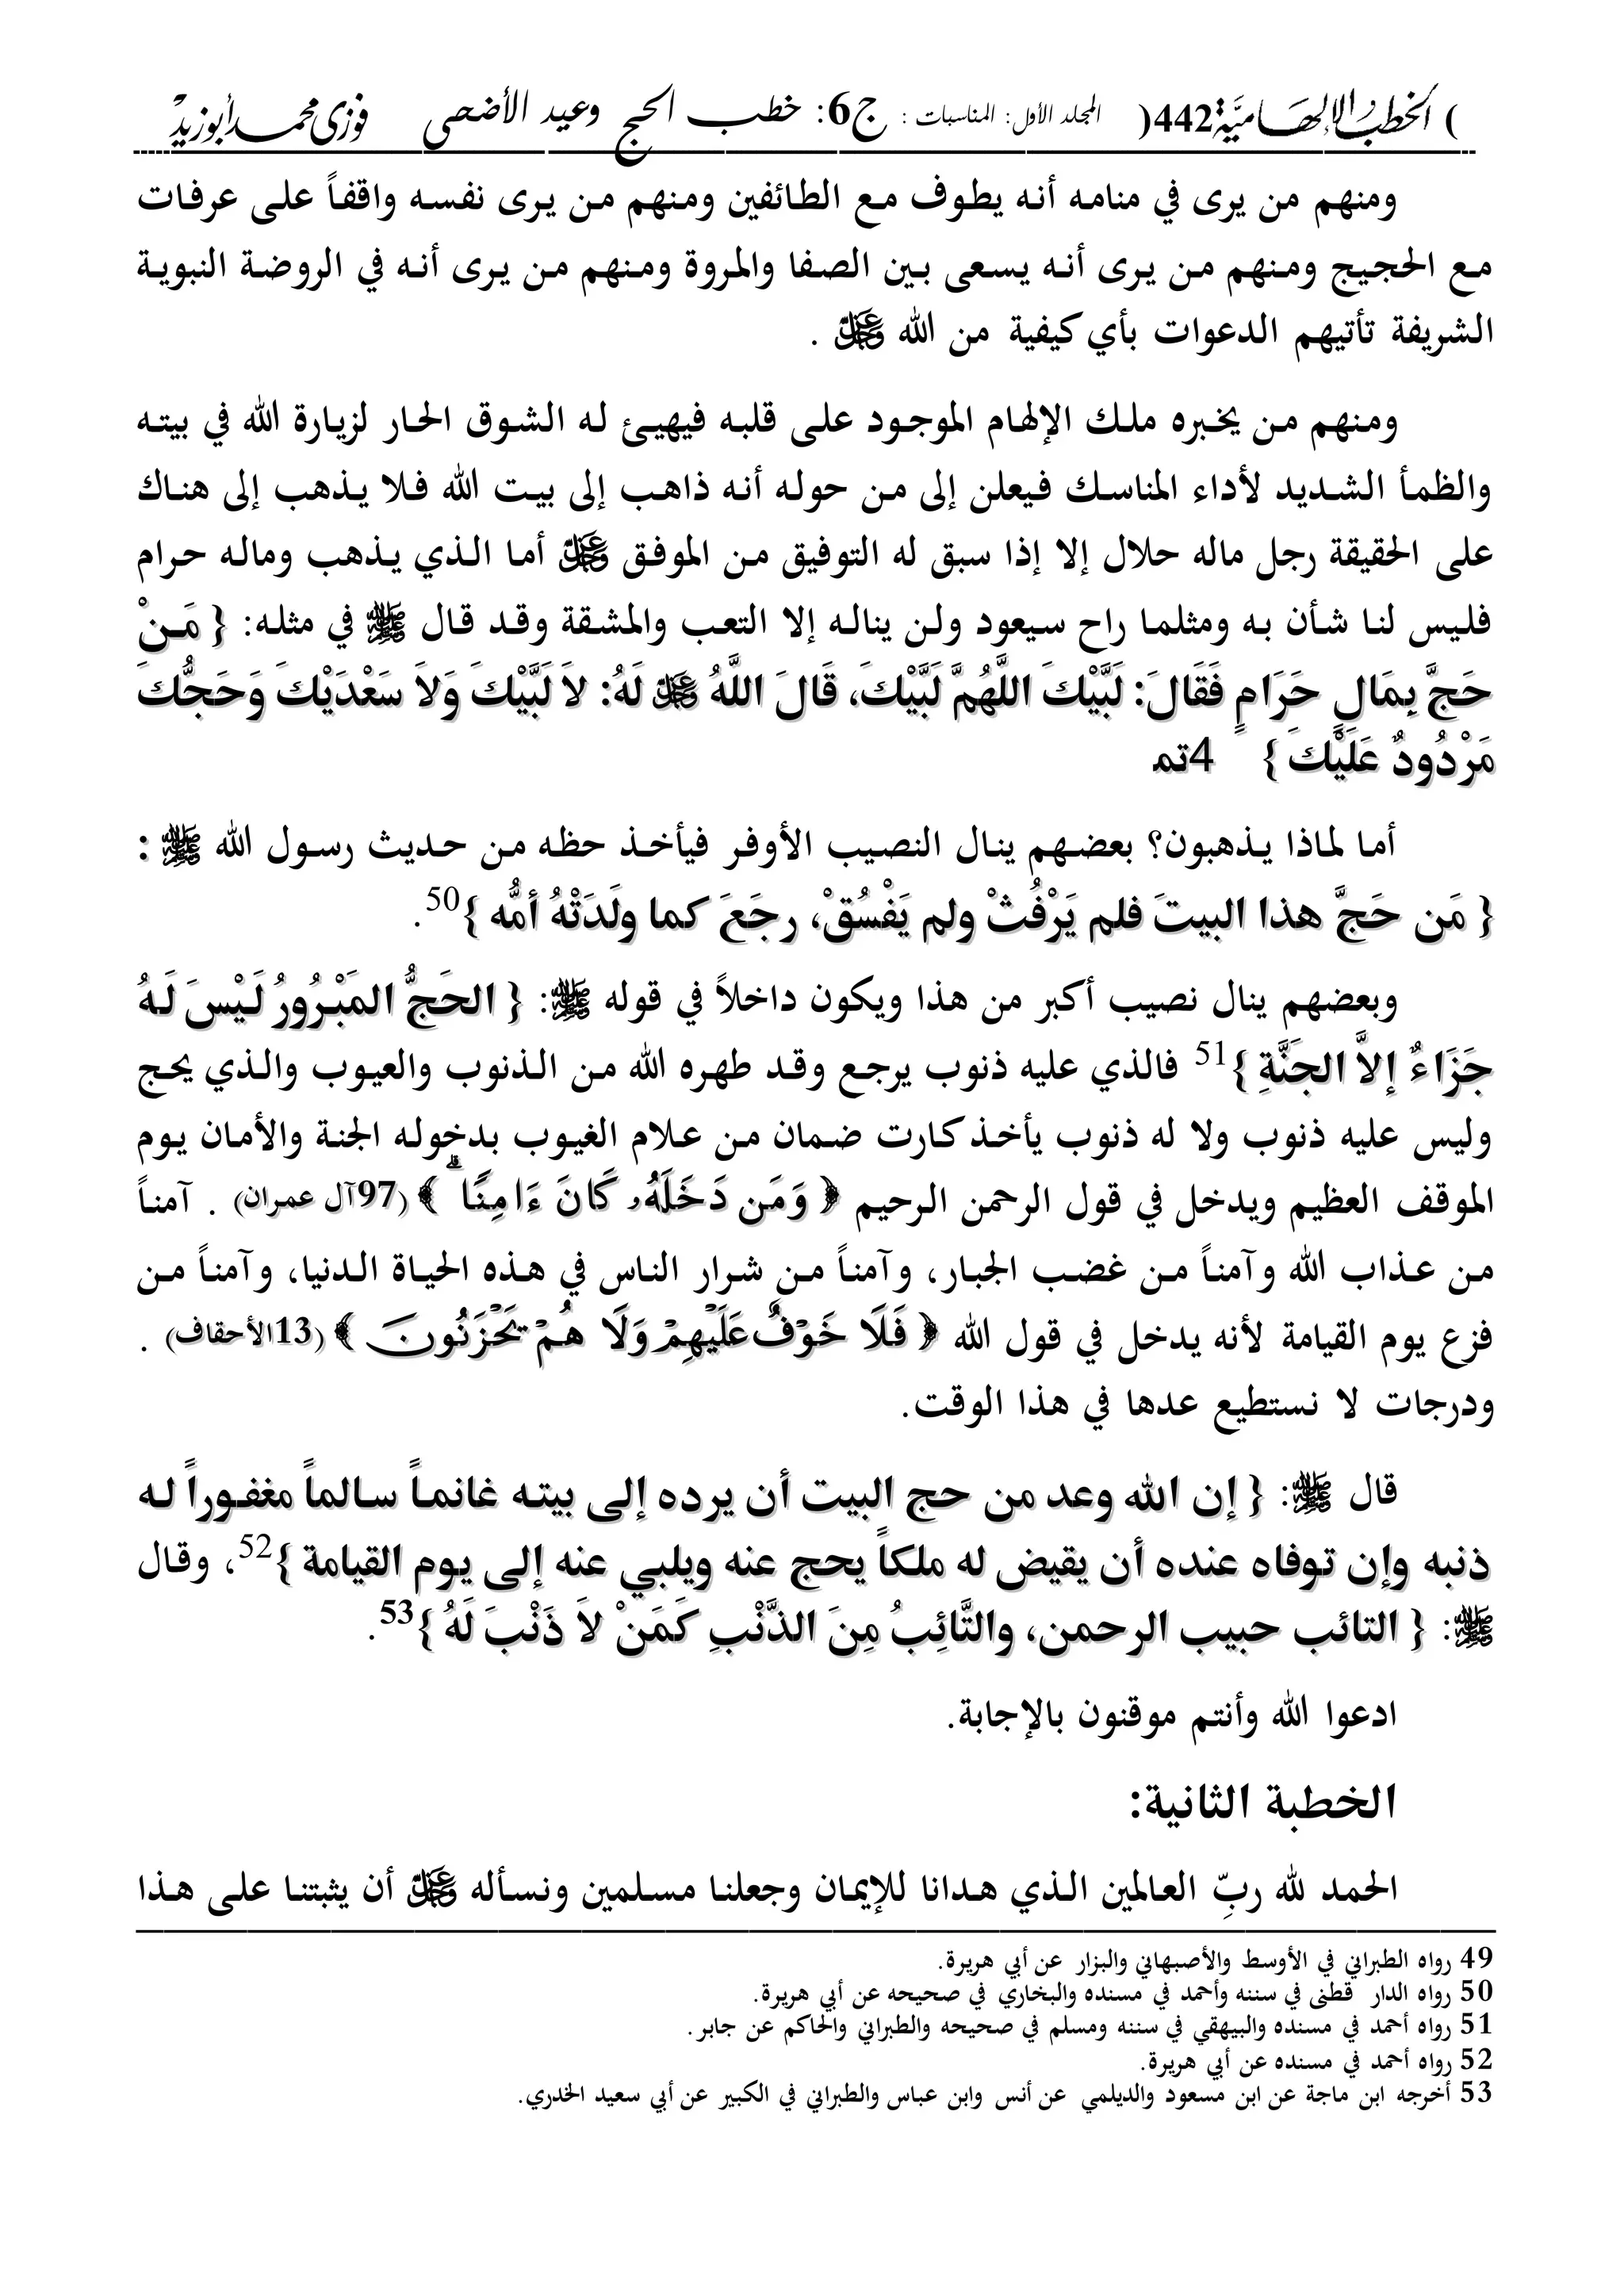 ( الخطب الإلهامية 442) المجلد الأول: المناسبات : ج6: خطب الحج وعيد الأضحى فوزى محمد أبوزيد
ومنهم من يرى في منامه أنه يطوف مع الطائفين ومنهم من يرى نفسه واقفاً على عرفات
مع الحجيج ومنهم من يرى أنه يسعى بين الصفا والمروة ومنهم من يرى أنه في الروضة النبوية
الشريفة تأتيهم الدعوات بأي كيفية من الله عز وجل .
ومنهم من يخبره ملك الإلهام الموجود على قلبه فيهيئ له الشوق الحار لزيارة الله في بيته
والظمأ الشديد لأداء المناسك فيعلن إلى من حوله أنه ذاهب إلى بيت الله فلا يذهب إلى هناك
على الحقيقة رجل ماله حلال إلا إذا سبق له التوفيق من الموفق عز وجل أما الذي يذهب وماله حرام
فليس لنا شأن به ومثلما راح سيعود ولن يناله إلا التعب والمشقة وقد قال ﷺ في مثله: { مَنْ
حَجَّ بِمَالٍ حَرَامٍ فَقَالَ: لَبَّيْكَ اللَّهُمَّ لَبَّيْكَ، قَالَ اللَّهُ ﷺ لَهُ: لاَ لَبَّيْكَ وَلاَ سَعْدَيْكَ وَحَجُّكَ
مَرْدُودٌ عَلَيْكَ } 4تم
أما لماذا يذهبون؟ بعضهم ينال النصيب الأوفر فيأخذ حظه من حديث رسول الله ﷺ :
{ مَن حَجَّ هذا البيتَ فلم يَرْفُثْ ولم يَفْسُقْ، رجَعَ كما ولَدَتْهُ أمُّه }50.
وبعضهم ينال نصيب أكبر من هذا ويكون داخلاً في قوله ﷺ: { الحَجُّ المَبْرُورُ لَيْسَ لَهُ
جَزَاءٌ إلاَّ الجَنَّةِ }51 فالذي عليه ذنوب يرجع وقد طهره الله من الذنوب والعيوب والذي يحج
وليس عليه ذنوب ولا له ذنوب يأخذ كارت ضمان من علام الغيوب بدخوله الجنة والأمان يوم
الموقف العظيم ويدخل في قول الرحمن الرحيم ﴿ وَمَن دَخَلَهُۥ كَانَ ءَامِنًا ۗ ﴾ (97آل عمران) . آمناً
من عذاب الله وآمناً من غضب الجبار، وآمناً من شرار الناس في هذه الحياة الدنيا، وآمناً من
فزع يوم القيامة لأنه يدخل في قول الله ﴿ فَلَا خَوْفٌ عَلَيْهِمْ وَلَا هُمْ يَحْزَنُونَ ﴾ (13الأحقاف) .
ودرجات لا نستطيع عدها في هذا الوقت.
قال ﷺ: { إن الله وعد من حج البيت أن يرده إلى بيته غانماً سالماً مغفوراً له
ذنبه وإن توفاه عنده أن يقيض له ملكاً يحج عنه ويلبي عنه إلى يوم القيامة }52، وقال
ﷺ: { التائب حبيب الرحمن، والتَّائِبُ مِنَ الذَّنْبِ كَمَنْ لاَ ذَنْبَ لَهُ }53.
ادعوا الله وأنتم موقنون بالإجابة.
الخطبة الثانية:
الحمد لله ربِّ العالمين الذي هدانا للإيمان وجعلنا مسلمين ونسأله عز وجل أن يثبتنا على هذا
49 رواه الطبراني في الأوسط والأصبهاني والبزار عن أبي هريرة.
50 رواه الدار قطنى في سننه وأحمد في مسنده والبخاري في صحيحه عن أبي هريرة.
51 رواه أحمد في مسنده والبيهقي في سننه ومسلم في صحيحه والطبراني والحاكم عن جابر.
52 رواه أحمد في مسنده عن أبي هريرة.
53 أخرجه ابن ماجة عن ابن مسعود والديلمي عن أنس وابن عباس والطبراني في الكبير عن أبي سعيد الخدري.